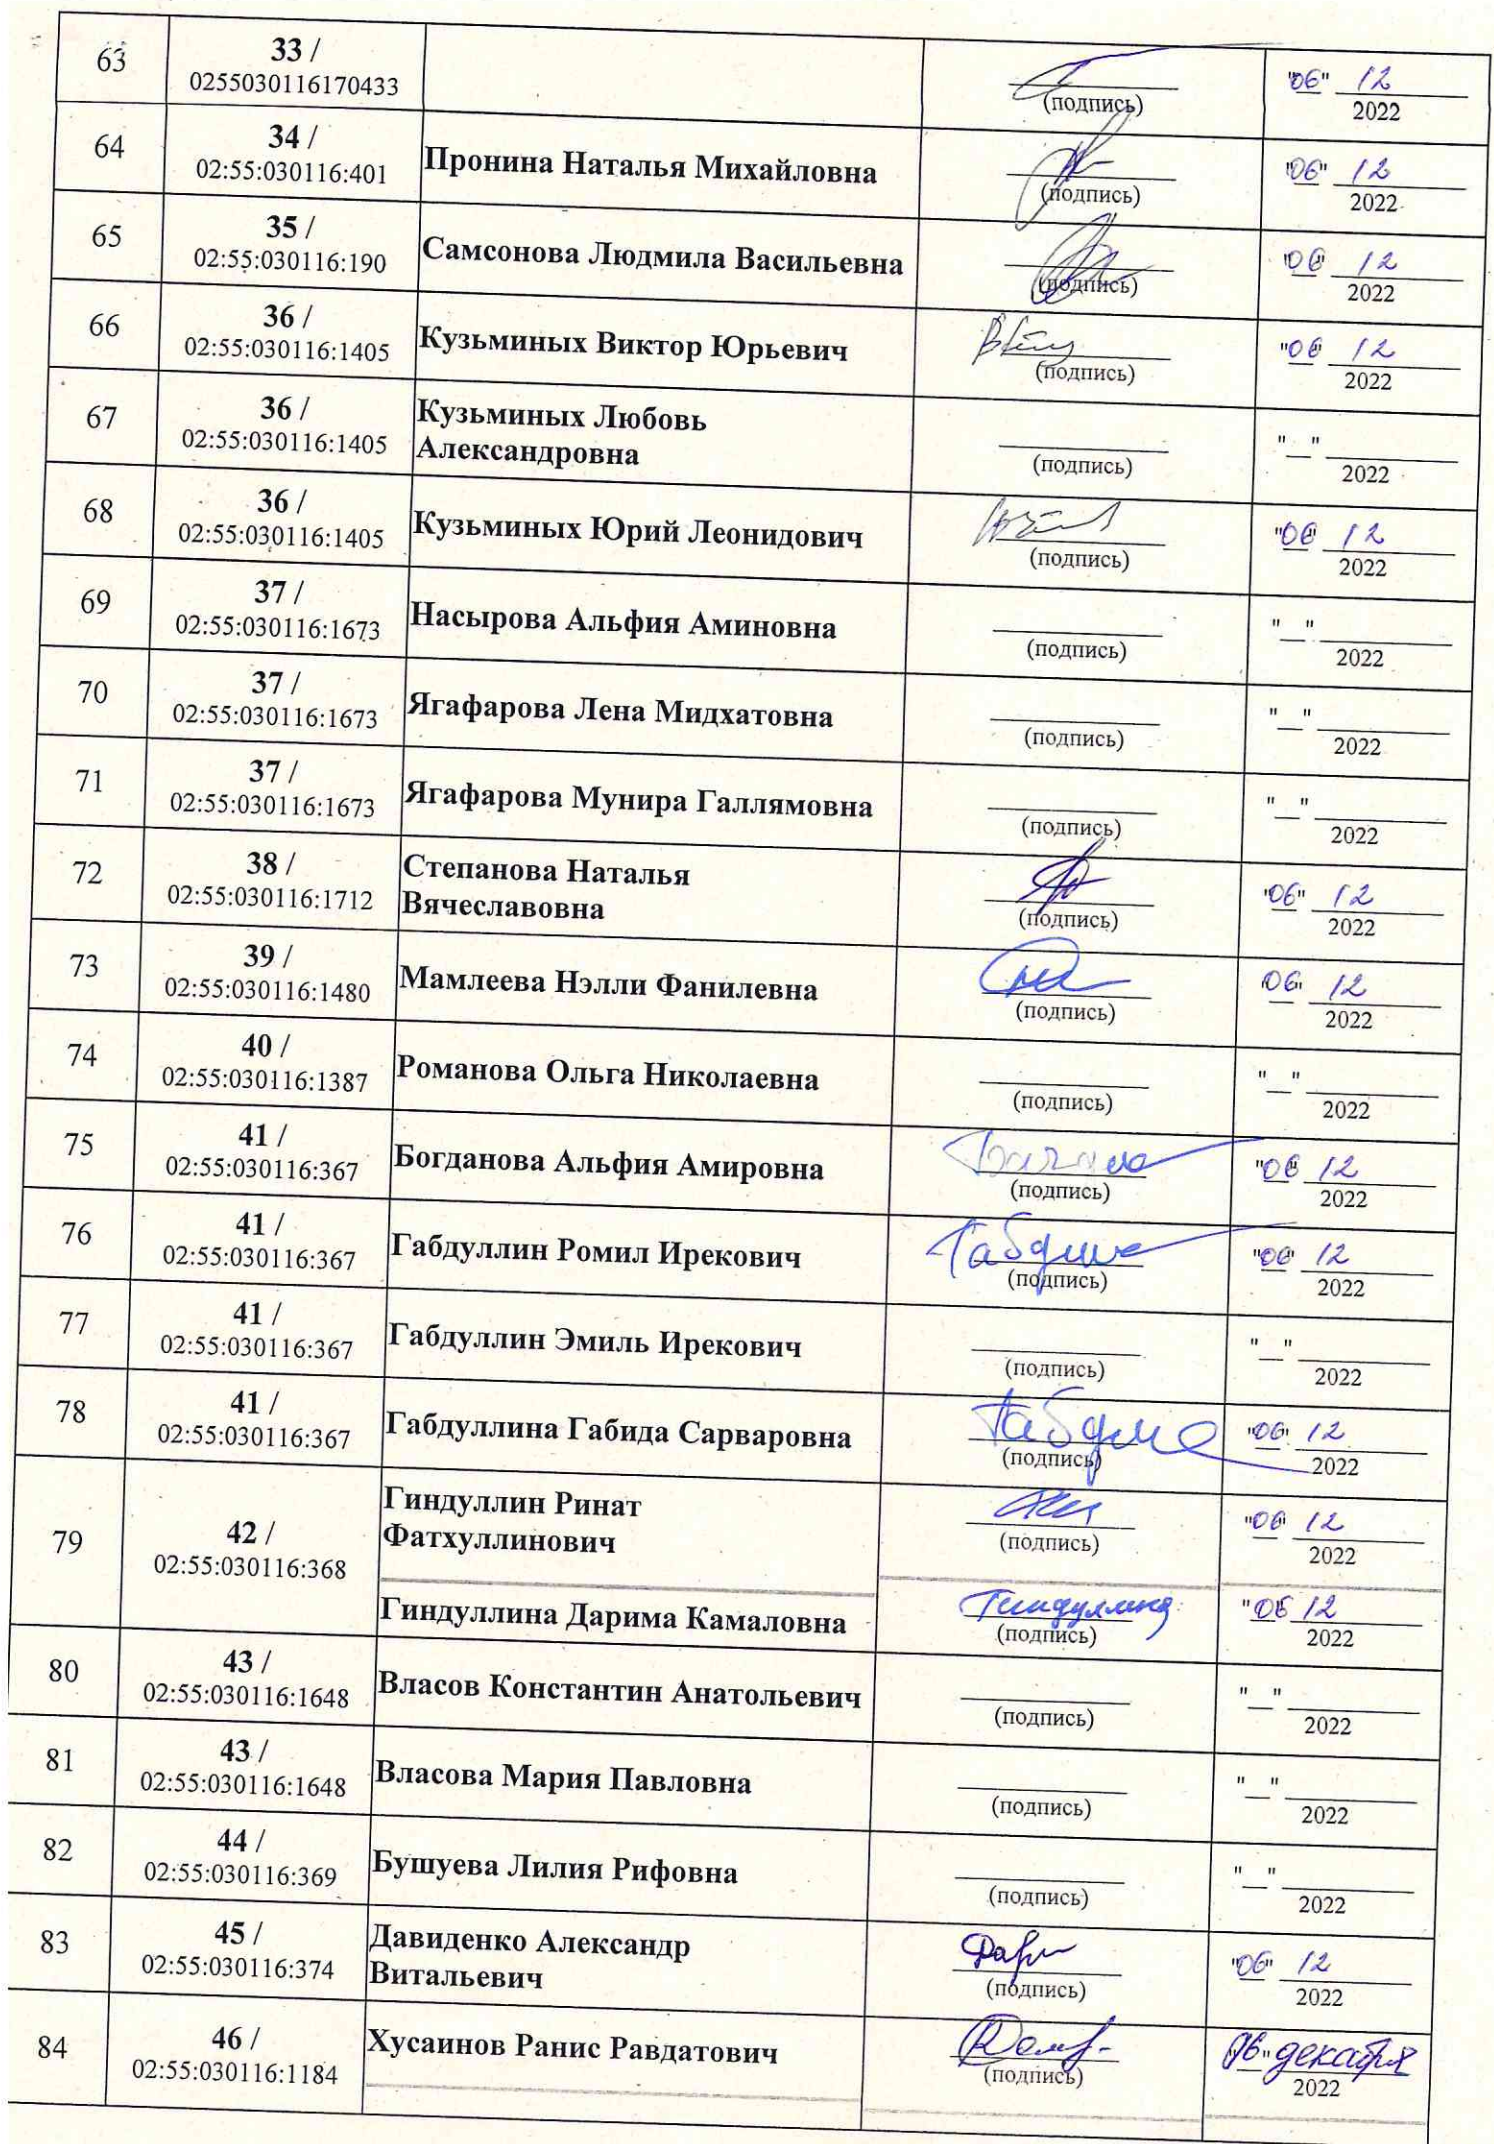 63
33 /
0255030116170433
(подпись)
"06" 12
2022
64
34 /
02:55:030116:401
Пронина Наталья Михайловна
(подпись)
"06" 12
2022
65
35 /
02:55:030116:190
Самсонова Людмила Васильевна
(подпись)
"06" 12
2022
66
36 /
02:55:030116:1405
Кузьминых Виктор Юрьевич
(подпись)
"06" 12
2022
67
36 /
02:55:030116:1405
Кузьминых Любовь
Александровна
(подпись)
"__"
2022
68
36 /
02:55:030116:1405
Кузьминых Юрий Леонидович
(подпись)
"06" 12
2022
69
37 /
02:55:030116:1673
Насырова Альфия Аминовна
(подпись)
"__"
2022
70
37 /
02:55:030116:1673
Ягафарова Лена Мидхатовна
(подпись)
"__"
2022
71
37 /
02:55:030116:1673
Ягафарова Мунира Галлямовна
(подпись)
"__"
2022
72
38 /
02:55:030116:1712
Степанова Наталья
Вячеславовна
(подпись)
"06" 12
2022
73
39 /
02:55:030116:1480
Мамлеева Нэлли Фанилевна
(подпись)
"06" 12
2022
74
40 /
02:55:030116:1387
Романова Ольга Николаевна
(подпись)
"__"
2022
75
41 /
02:55:030116:367
Богданова Альфия Амировна
(подпись)
"06" 12
2022
76
41 /
02:55:030116:367
Габдуллин Ромил Ирекович
(подпись)
"06" 12
2022
77
41 /
02:55:030116:367
Габдуллин Эмиль Ирекович
(подпись)
"__"
2022
78
41 /
02:55:030116:367
Габдуллина Габида Сарваровна
(подпись)
"06" 12
2022
79
42 /
02:55:030116:368
Гиндуллин Ринат
Фатхуллинович
(подпись)
"06" 12
2022
Гиндуллина Дарима Камаловна
Гиндуллина
(подпись)
"06" 12
2022
80
43 /
02:55:030116:1648
Власов Константин Анатольевич
(подпись)
"__"
2022
81
43 /
02:55:030116:1648
Власова Мария Павловна
(подпись)
"__"
2022
82
44 /
02:55:030116:369
Бушуева Лилия Рифовна
(подпись)
"__"
2022
83
45 /
02:55:030116:374
Давиденко Александр
Витальевич
(подпись)
"06" 12
2022
84
46 /
02:55:030116:1184
Хусаинов Ранис Равдатович
(подпись)
"06" декабря
2022